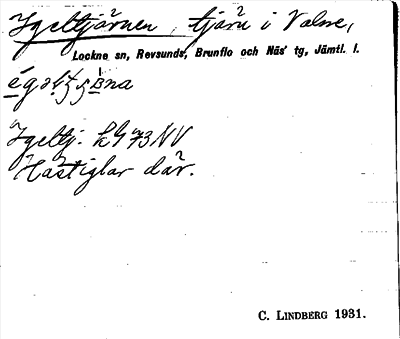 Igeltjärnen, tjärn i Valne,
Lockne sn, Revsunds, Brunflo och Näs' tg, Jämtl. l.
Igeltj. LG 73 NV
Hästiglar där.
C. LINDBERG 1931.